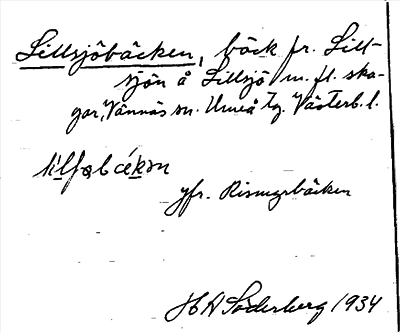 Lillsjöbäcken, bäck fr. Lill-
sjön å Lillsjö m. fl. ska-
gar, Vännäs sn. Umeå tg. Västerb. l.
jfr. Rismyrbäcken
H A Söderberg 1934